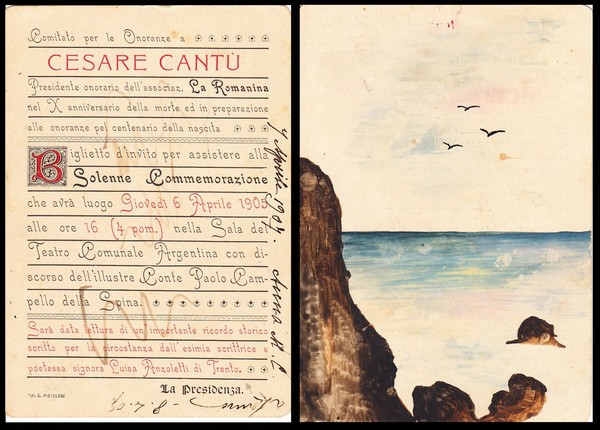 Comitato per le Onoranze a
CESARE CANTÙ
Presidente onorario dell'associaz. La Romanina
nel X anniversario della morte ed in preparazione
alle onoranze pel centenario della nascita
Biglietto d'invito per assistere alla
Solenne Commemorazione
che avrà luogo Giovedì 6 Aprile 1905
alle ore 16 (4 pom.) nella Sala del
Teatro Comunale Argentina con di-
scorso dell'illustre Conte Paolo Cam-
pello della Spina.
Sarà data lettura di un importante ricordo storico
scritto per la circostanza dall'esimia scrittrice e
poetessa signora Luisa Anzoletti di Trento.
La Presidenza.
TIP. E. PISTOLESI
Aprile